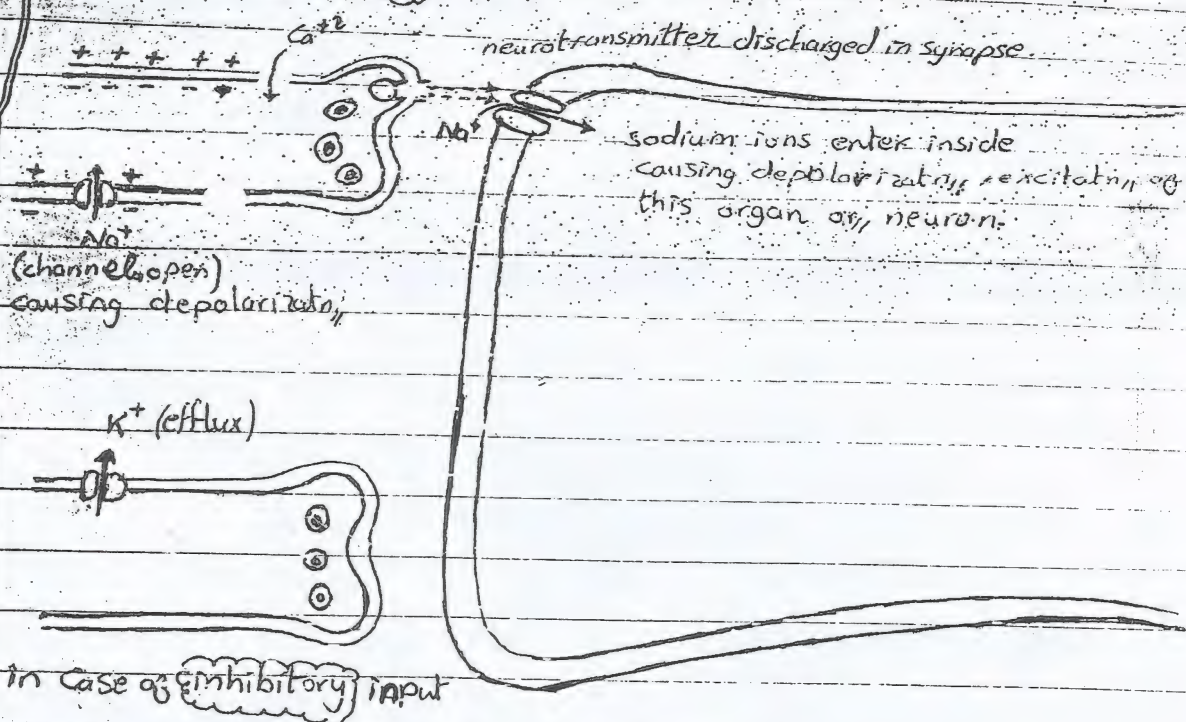 Ca+2
neurotransmitter discharged in synapse
+ + + + +
- - - - -
Na+
sodium ions enter inside
causing depolarizatn,, , excitatn,, of
this organ or,, neuron.
+ +
- -
Na+
(channel open)
causing depolarizatn,,
K+ (efflux)
in case of inhibitory input